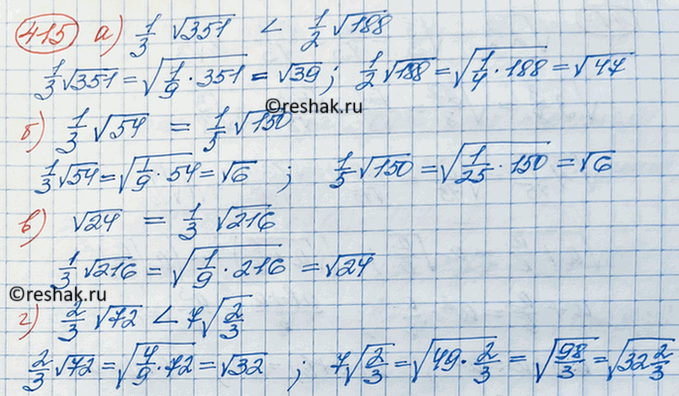 415 а) 1/3 √351 < 1/2 √188
1/3 √351 = √(1/9 · 351) = √39; 1/2 √188 = √(1/4 · 188) = √47
©reshak.ru
б) 1/3 √54 = 1/5 √150
1/3 √54 = √(1/9 · 54) = √6 ; 1/5 √150 = √(1/25 · 150) = √6
в) √24 = 1/3 √216
1/3 √216 = √(1/9 · 216) = √24
©reshak.ru
г) 2/3 √72 < 7√(2/3)
2/3 √72 = √(4/9 · 72) = √32 ; 7√(2/3) = √(49 · 2/3) = √(98/3) = √(32 2/3)